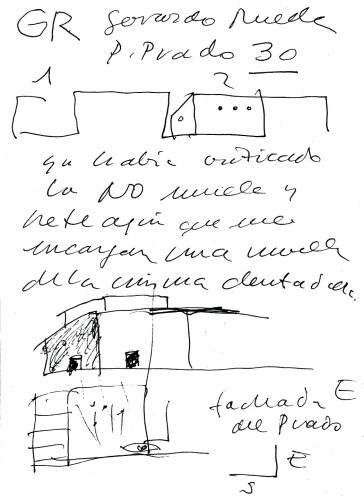 GR Gerardo Rueda
P. Prado 30
1 2
ya había criticado
la NO muela y
hete aquí que me
encargan una muela
de la misma dentadura.
fachada E
del Prado
E
S